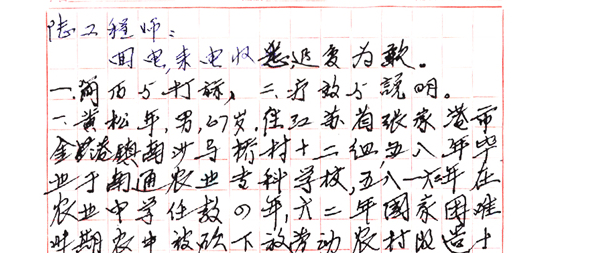 陆工程师:
回电,来电收悉迟复为歉。
一.简历与打标, 二.疗效与説明。
一.黄松年,男,67岁,住江苏省张家港市
金港镇南沙号桥村十二组,五八年毕
业于南通农业专科学校,五八一六二年在
农业中学任教四年,六二年国家困难
时期农中被砍下放劳动农村改造十